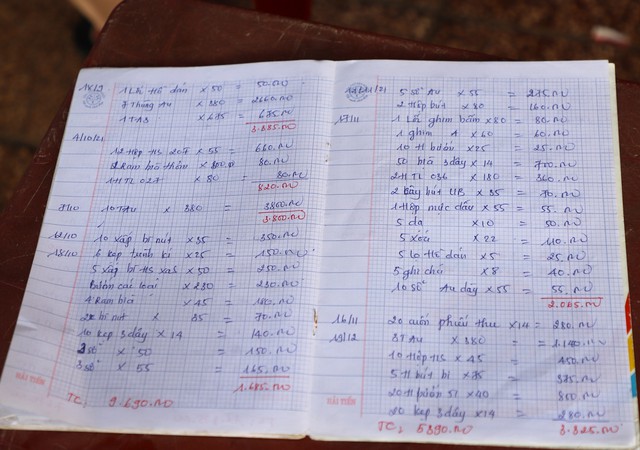 14/9 1 Lố hồ dán x 50 = 50.000
7 Thùng Au x 380 = 2660.000
1 TA3 x 675 = 675.000
3.385.000
4/10/21
12 Hộp HS 20T x 55 = 660.000
x 80.000 = 80.000
1 HTL 027 x 80 = 80.000
820.000
7/10 10 TAu x 380 = 3800.000
3.800.000
12/10 10 xấp bì nút x 35 = 350.000
18/10 6 kẹp trình kí x 25 = 150.000
5 xấp bì HS x 50 = 250.000
Bấm các loại x 230 = 230.000
4 Ram bìa x 45 = 180.000
2 bì nút x 35 = 70.000
10 kẹp 3 dây x 14 = 140.000
3 số x 50 = 150.000
3 số x 55 = 165.000
1.685.000
HẢI TIẾN
TC: 9.690.000
5 số Au x 55 = 275.000
2 Hộp bút x 80 = 160.000
17/11 1 Lố ghim bấm x 80 = 80.000
1 ghim x 60 = 60.000
10 H bướm x 25 = 25.000
50 bìa 3 dây x 14 = 700.000
2 HTL 036 x 180 = 360.000
2 bây bút UB x 35 = 70.000
1 Hộp mực dấu x 55 = 55.000
5 da x 10 = 50.000
5 xốc x 22 = 110.000
5 lọ Hồ dán x 5 = 25.000
5 ghi chú x 8 = 40.000
10 số Au dày x 55 = 55.000
2.065.000
16/11 20 cuốn phiếu thu x 14 = 280.000
19/12 3 TAu x 380 = 1.140.000
10 Hộp HS x 45 = 450.000
5 H bút bi x 75 = 375.000
20 H 51 x 40 = 800.000
20 kẹp 3 dây x 14 = 280.000
HẢI TIẾN
TC: 5390.000 3.325.000